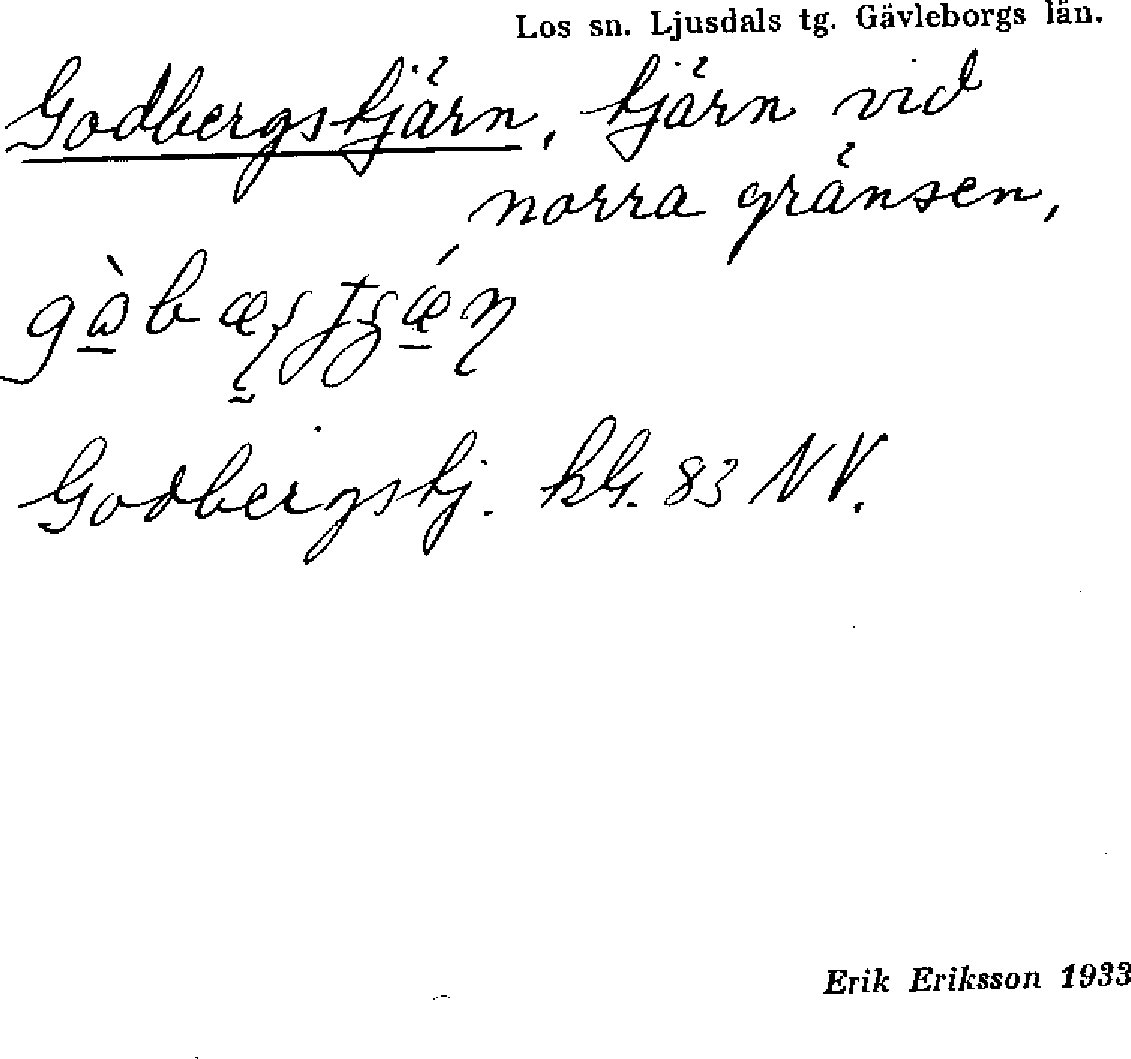 Los sn. Ljusdals tg. Gävleborgs län.
Godbergstjärn, tjärn vid
norra gränsen,
Godbergstj. kbl. 83 NV.
Erik Eriksson 1933